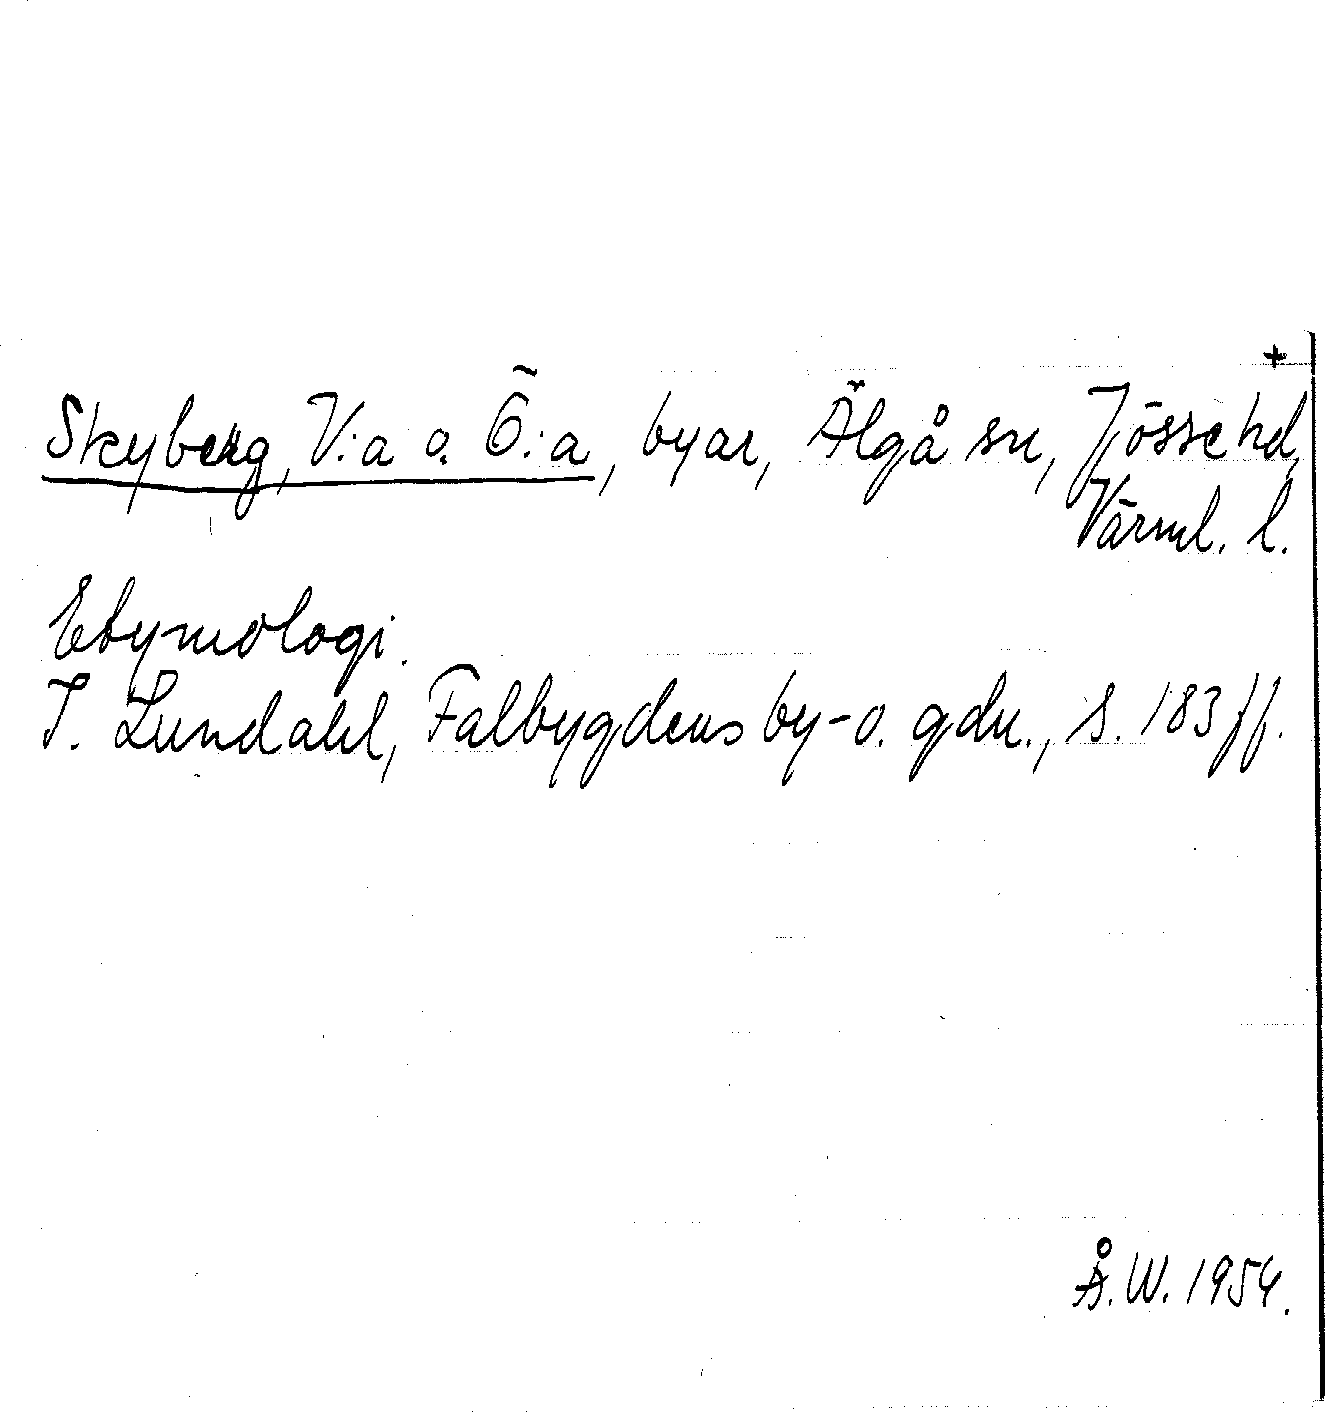 +
Skyberg, V:a o. Ö:a, byar, Älgå sn, Jösse hd,
Värml. l.
Etymologi.
I. Lundahl, Falbygdens by- o. gdn., s. 183 ff.
Å.W. 1954.